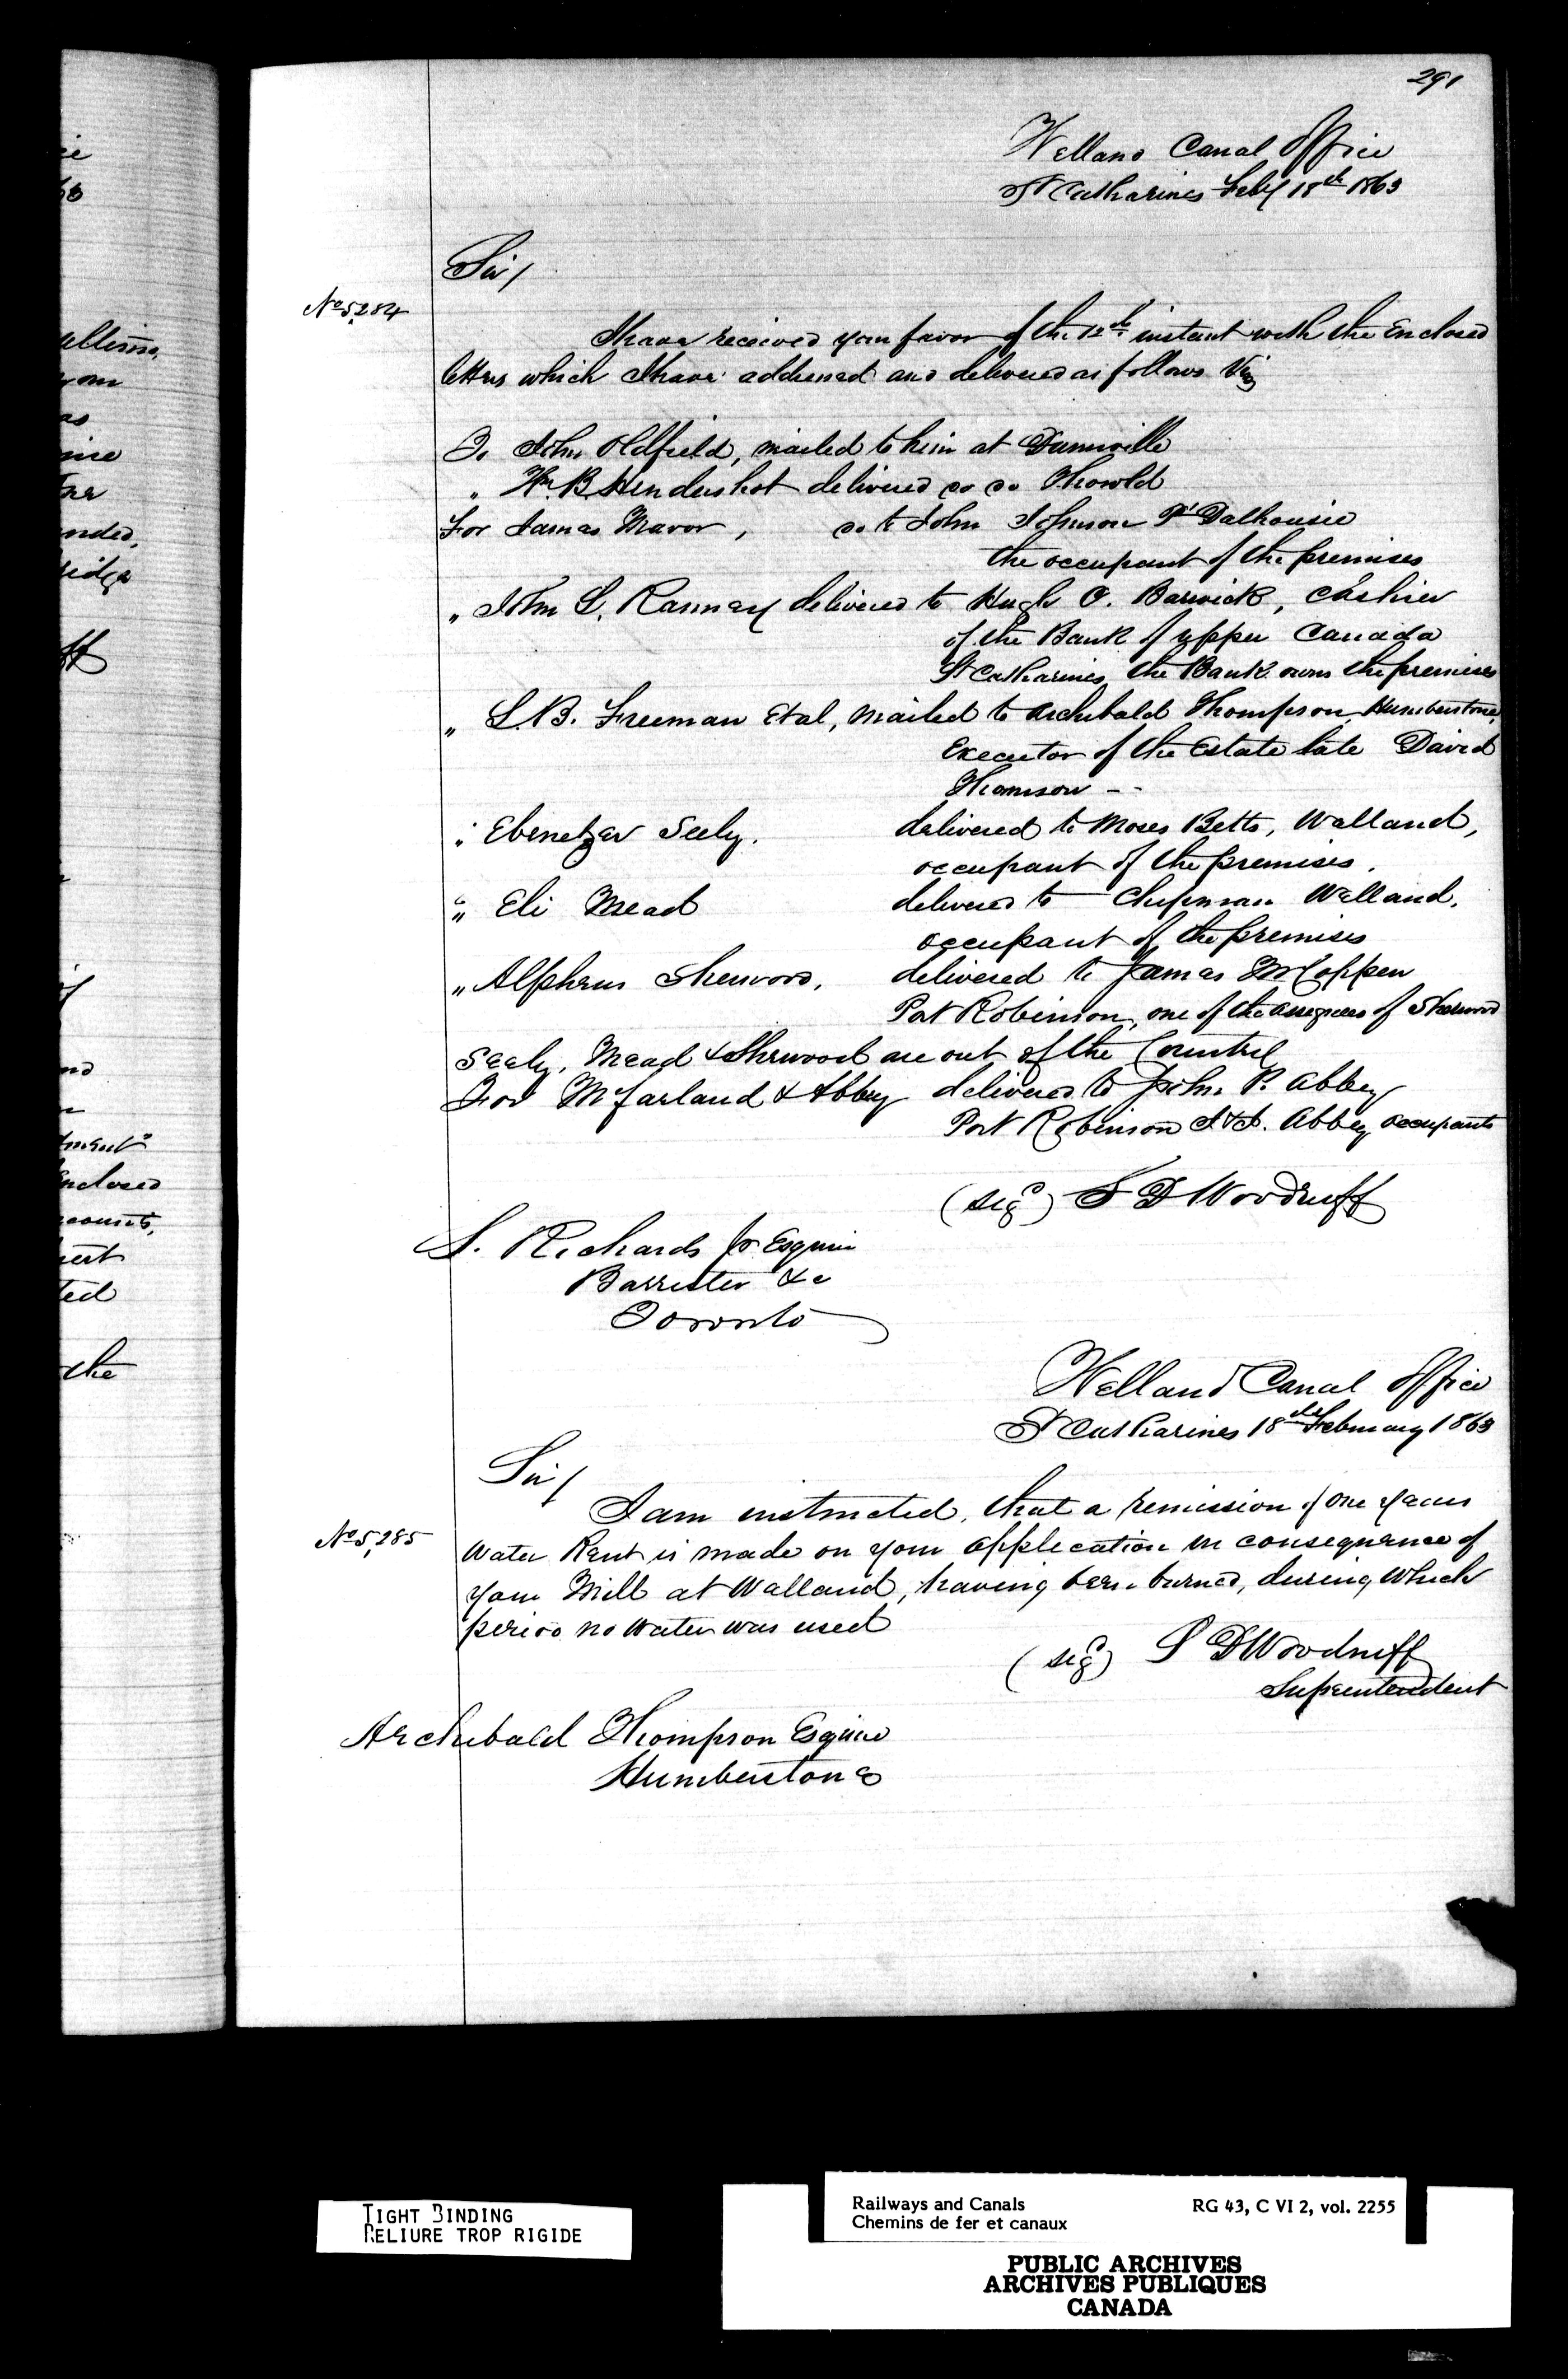 291
Welland Canal Office
St Catharines Feby 18th 1863
Sir/
No 5,284
I have received your favor of the 12th instant with the Enclosed
letters which I have addressed and delivered as follows Viz
To John Oldfield, mailed to him at Dunnville
" Wm B. Hendershot delivered do do Thorold
For James Mavor, do to John Johnson Pt Dalhousie
the occupant of the premises
" John L. Ranney delivered to Hugh C. Barwick, Cashier
of the Bank of Upper Canada
St Catharines, the Bank owns the premises
" S. B. Freeman Etal, mailed to Archibald Thompson, Humberstone,
Executor of the Estate late David
Thomson --
" Ebenetzer Seely. delivered to Moses Betts, Welland,
occupant of the premises.
" Eli Mead delivered to Chipman Welland,
occupant of the premises
" Alpheus Sherwood, delivered to James McCoppen
Port Robinson, one of the assignees of Sherwood
Seely, Mead & Sherwood are out of the Country
For McFarland & Abbey delivered to John P. Abbey
Port Robinson J & J. Abbey occupants
(sigd) S D Woodruff
S. Richards Jr Esquire
Barrister &c
Toronto
Welland Canal Office
St Catharines 18th February 1863
Sir/
No 5,285
I am instructed, that a remission of one years
Water Rent is made on your application in consequence of
your Mill at Welland, having been burned, during which
period no water was used
(sigd) S D Woodruff
Superintendent
Archibald Thompson Esquire
Humberstone
TIGHT BINDING
RELIURE TROP RIGIDE
Railways and Canals RG 43, C VI 2, vol. 2255
Chemins de fer et canaux
PUBLIC ARCHIVES
ARCHIVES PUBLIQUES
CANADA